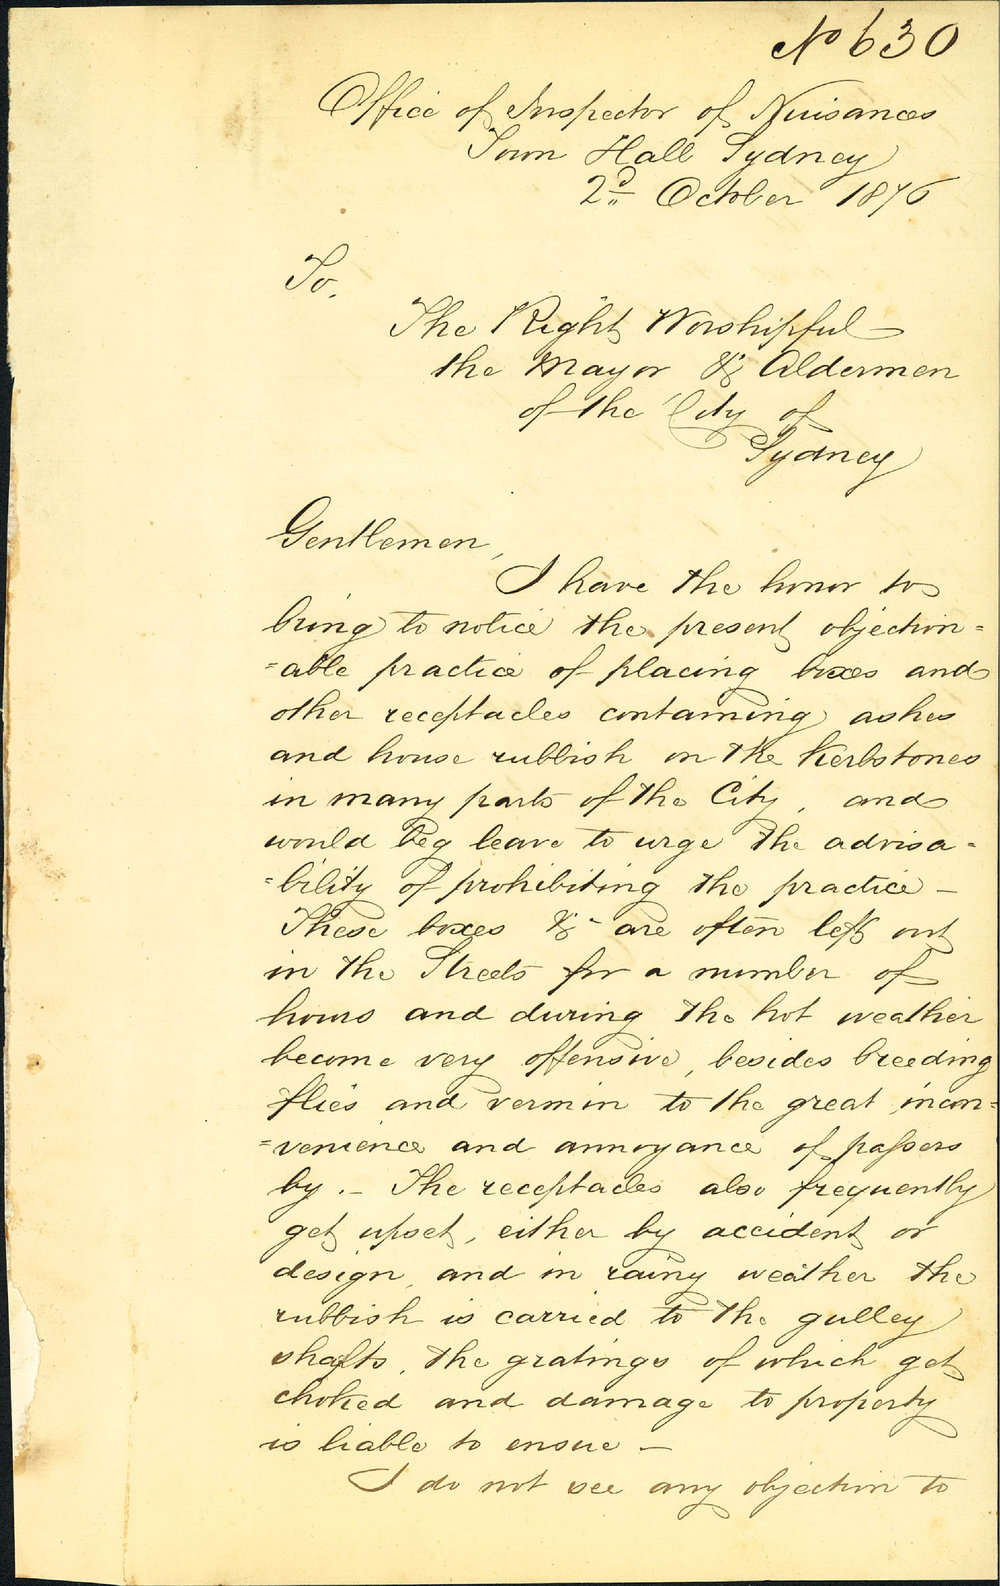 No 630
Office of Inspector of Nuisances
Town Hall Sydney
2d October 1876
To,
The Right Worshipful
the Mayor & Aldermen
of the City of
Sydney
Gentlemen,
I have the honor to
bring to notice the present objection=
=able practice of placing boxes and
other receptacles containing ashes
and house rubbish on the Kerbstones
in many parts of the City, and
would beg leave to urge the advisa=
=bility of prohibiting the practice –
These boxes &c are often left out
in the Streets for a number of
hours and during the hot weather
become very offensive, besides breeding
flies and vermin to the great incon=
=venience and annoyance of passers
by. – The receptacles also frequently
get upset, either by accident or
design, and in rainy weather the
rubbish is carried to the gulley
shafts, the gratings of which get
choked and damage to property
is liable to ensue –
I do not see any objection to